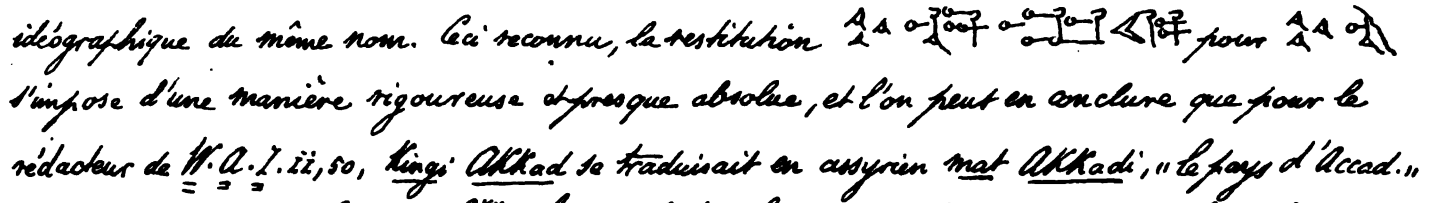 idéographique du même nom. Ceci reconnu, la restitution pour
s'impose d'une manière rigoureuse et presque absolue, et l'on peut en conclure que pour le
rédacteur de W.A.I. ii, 50, Kingi Akkad se traduisait en assyrien mat Akkadi, „le pays d'Accad.„